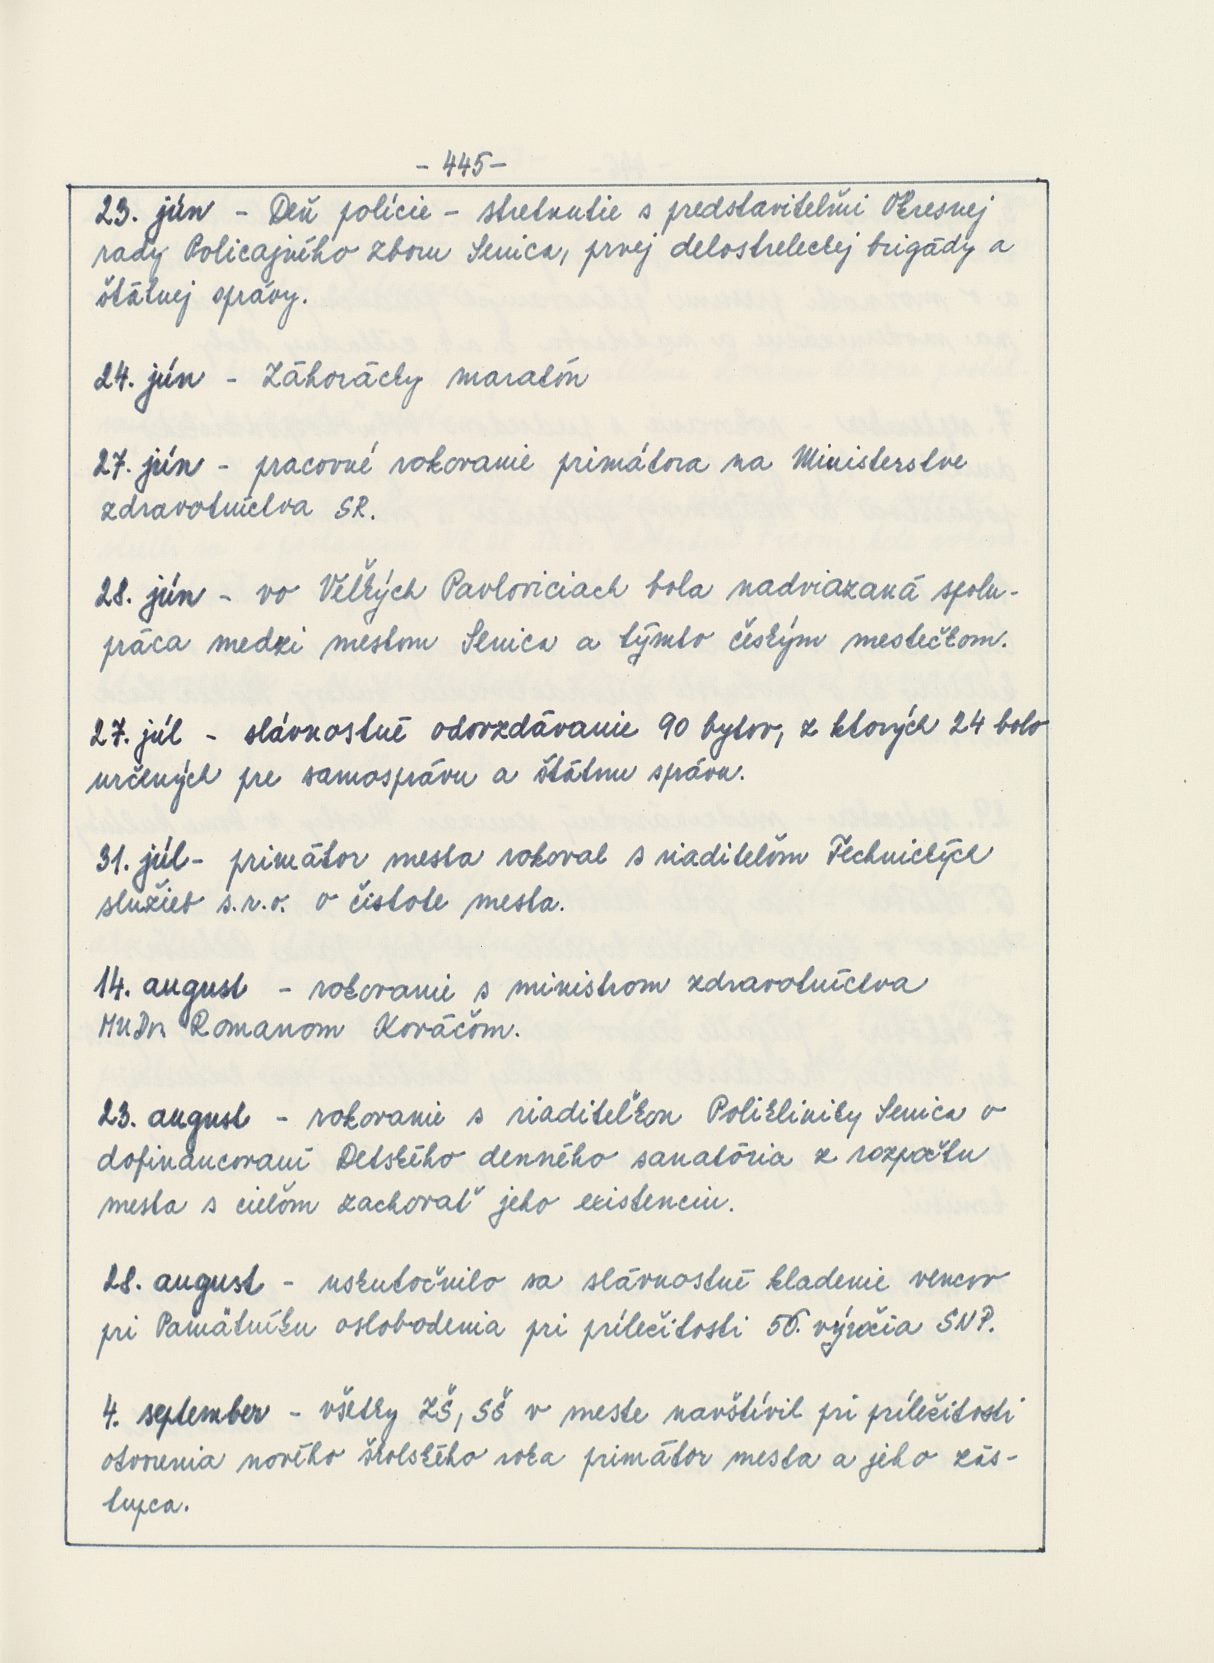 - 445 -
23. jún - Deň polície - stretnutie s predstaviteľmi Okresnej
rady Policajného zboru Senica, prvej delostreleckej brigády a
štátnej správy.
24. jún - Záhorácky maratón
27. jún - pracovné rokovanie primátora na Ministerstve
zdravotníctva SR.
28. jún - vo Veľkých Pavloviciach bola nadviazaná spolu-
práca medzi mestom Senica a týmto českým mestečkom.
27. júl - slávnostné odovzdávanie 90 bytov, z ktorých 24 bolo
určených pre samosprávu a štátnu správu.
31. júl - primátor mesta rokoval s riaditeľom Technických
služieb s.r.o. o čistote mesta.
14. august - rokovanie s ministrom zdravotníctva
MUDr. Romanom Kováčom.
23. august - rokovanie s riaditeľkou Polikliniky Senica o
dofinancovaní Detského denného sanatória z rozpočtu
mesta s cieľom zachovať jeho existenciu.
28. august - uskutočnilo sa slávnostné kladenie vencov
pri Pamätníku oslobodenia pri príležitosti 56. výročia SNP.
4. september - všetky ZŠ, SŠ v meste navštívil pri príležitosti
otvorenia nového školského roka primátor mesta a jeho zás-
tupca.